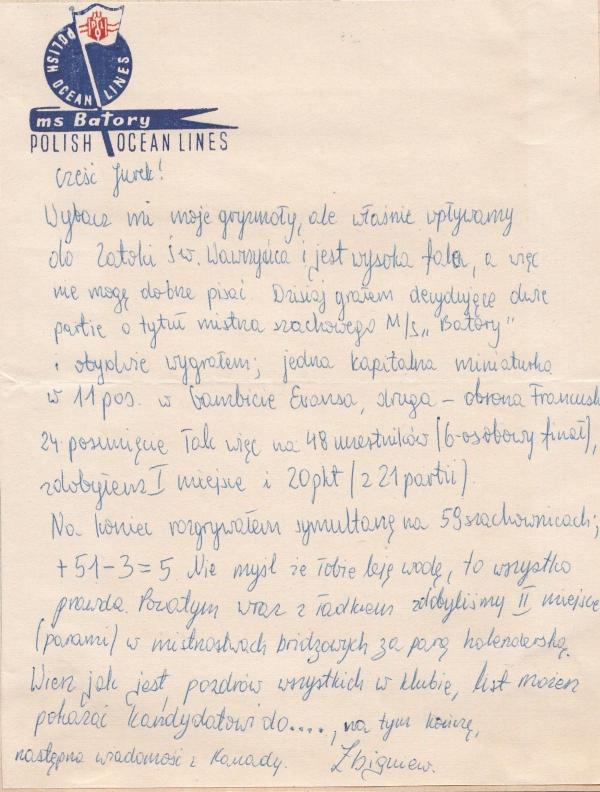 POLISH OCEAN LINES
ms Batory
POLISH OCEAN LINES
Cześć Jurek!
Wybacz mi moje gryzmoły, ale właśnie wpływamy
do Zatoki Św. Wawrzyńca i jest wysoka fala, a więc
nie mogę dobrze pisać. Dzisiaj grałem decydujące dwie
partie o tytuł mistrza szachowego M/s „Batory"
i obydwie wygrałem; jedna kapitalna miniaturka
w 11 pos. w Gambicie Evansa, druga – obrona Francusk
24 posunięcie Tak więc na 48 uczestników (6-osobowy finał),
zdobyłem I miejsce i 20 pkt (z 21 partii).
Na koniec rozgrywałem symultanę na 59 szachownicach;
+51-3=5 Nie myśl że Tobie leję wodę, to wszystko
prawda. Pozatym wraz z Tadkiem zdobyliśmy II miejsce
(parami) w mistrzostwach bridżowych za parą holenderską.
Wiesz jak jest, pozdrów wszystkich w klubie, list możesz
pokazać kandydatowi do...., na tym kończę,
następna wiadomość z Kanady. Zbigniew.